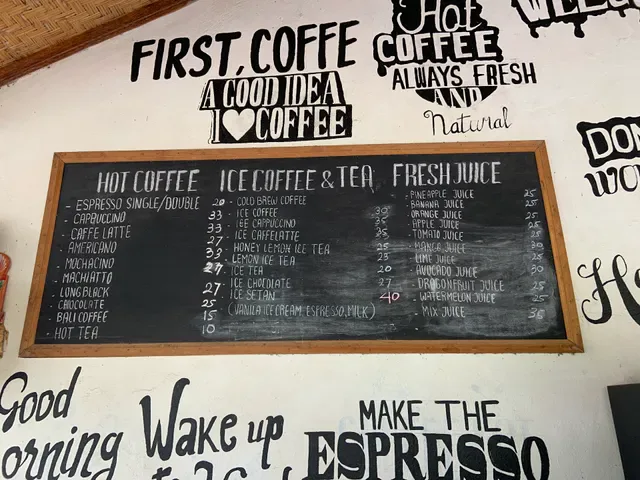 FIRST, COFFE
A GOOD IDEA
I ♥ COFFEE
Hot
COFFEE
ALWAYS FRESH
AND
Natural
HOT COFFEE
- ESPRESSO SINGLE/DOUBLE 20
- CAPPUCCINO 33
- CAFFE LATTE 33
- AMERICANO 27
- MOCHACINO 33
- MACHIATTO 27
- LONG BLACK 27
- CHOCOLATE 25
- BALI COFFEE 15
- HOT TEA 10
ICE COFFEE & TEA
- COLD BREW COFFEE
- ICE COFFEE 30
- ICE CAPPUCINO 35
- ICE CAFFELATTE 35
- HONEY LEMON ICE TEA 25
- LEMON ICE TEA 23
- ICE TEA 20
- ICE CHOCLATE 27
- ICE SETAN 40
(VANILA ICE CREAM, ESPRESSO, MILK)
FRESH JUICE
- PINEAPPLE JUICE 25
- BANANA JUICE 25
- ORANGE JUICE 25
- APPLE JUICE 25
- TOMATO JUICE 25
- MANGO JUICE 30
- LIME JUICE 25
- AVOCADO JUICE 30
- DRAGONFRUIT JUICE 25
- WATERMELON JUICE 25
- MIX JUICE 35
Good
orning
Wake up
MAKE THE
ESPRESSO